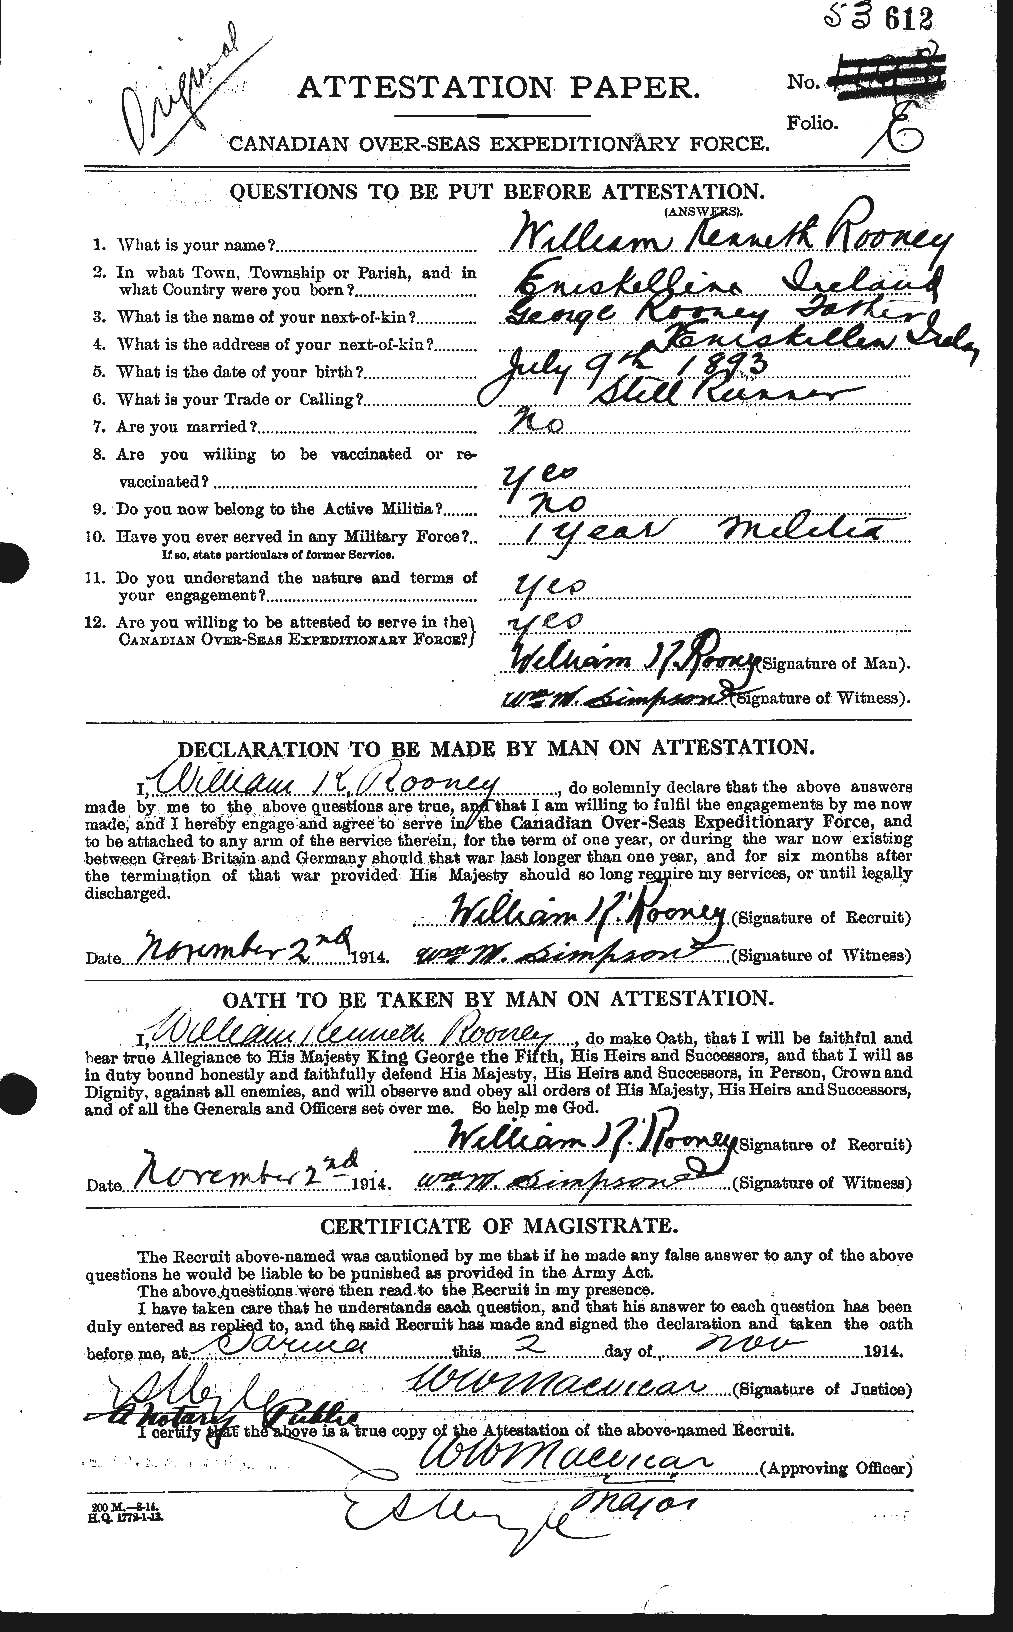 53 612
Original
ATTESTATION PAPER.
No.
Folio. E
CANADIAN OVER-SEAS EXPEDITIONARY FORCE.
QUESTIONS TO BE PUT BEFORE ATTESTATION.
(ANSWERS).
1. What is your name? William Kenneth Rooney
2. In what Town, Township or Parish, and in
what Country were you born? Eniskilling Ireland
3. What is the name of your next-of-kin? George Rooney Father
4. What is the address of your next-of-kin? Eniskillen Irelan
5. What is the date of your birth? July 9th 1893
6. What is your Trade or Calling? Still Runner
7. Are you married? No
8. Are you willing to be vaccinated or re-
vaccinated? yes
9. Do you now belong to the Active Militia? no
10. Have you ever served in any Military Force? 1 year Militia
If so, state particulars of former Service.
11. Do you understand the nature and terms of
your engagement? yes
12. Are you willing to be attested to serve in the
CANADIAN OVER-SEAS EXPEDITIONARY FORCE? } yes
William K. Rooney (Signature of Man).
Wm W. Simpson (Signature of Witness).
DECLARATION TO BE MADE BY MAN ON ATTESTATION.
I, William K. Rooney, do solemnly declare that the above answers
made by me to the above questions are true, and that I am willing to fulfil the engagements by me now
made, and I hereby engage and agree to serve in the Canadian Over-Seas Expeditionary Force, and
to be attached to any arm of the service therein, for the term of one year, or during the war now existing
between Great Britain and Germany should that war last longer than one year, and for six months after
the termination of that war provided His Majesty should so long require my services, or until legally
discharged.
William K. Rooney (Signature of Recruit)
Date November 2nd 1914. Wm W. Simpson (Signature of Witness)
OATH TO BE TAKEN BY MAN ON ATTESTATION.
I, William Kenneth Rooney, do make Oath, that I will be faithful and
bear true Allegiance to His Majesty King George the Fifth, His Heirs and Successors, and that I will as
in duty bound honestly and faithfully defend His Majesty, His Heirs and Successors, in Person, Crown and
Dignity, against all enemies, and will observe and obey all orders of His Majesty, His Heirs and Successors,
and of all the Generals and Officers set over me. So help me God.
William K. Rooney (Signature of Recruit)
Date November 2nd 1914. Wm W. Simpson (Signature of Witness)
CERTIFICATE OF MAGISTRATE.
The Recruit above-named was cautioned by me that if he made any false answer to any of the above
questions he would be liable to be punished as provided in the Army Act.
The above questions were then read to the Recruit in my presence.
I have taken care that he understands each question, and that his answer to each question has been
duly entered as replied to, and the said Recruit has made and signed the declaration and taken the oath
before me, at Sarnia this 2 day of Nov 1914.
WW Macvicar (Signature of Justice)
A Notary Public
I certify that the above is a true copy of the Attestation of the above-named Recruit.
WW Macvicar (Approving Officer)
Major
200 M.—8-14.
H.Q. 1772-1-13.